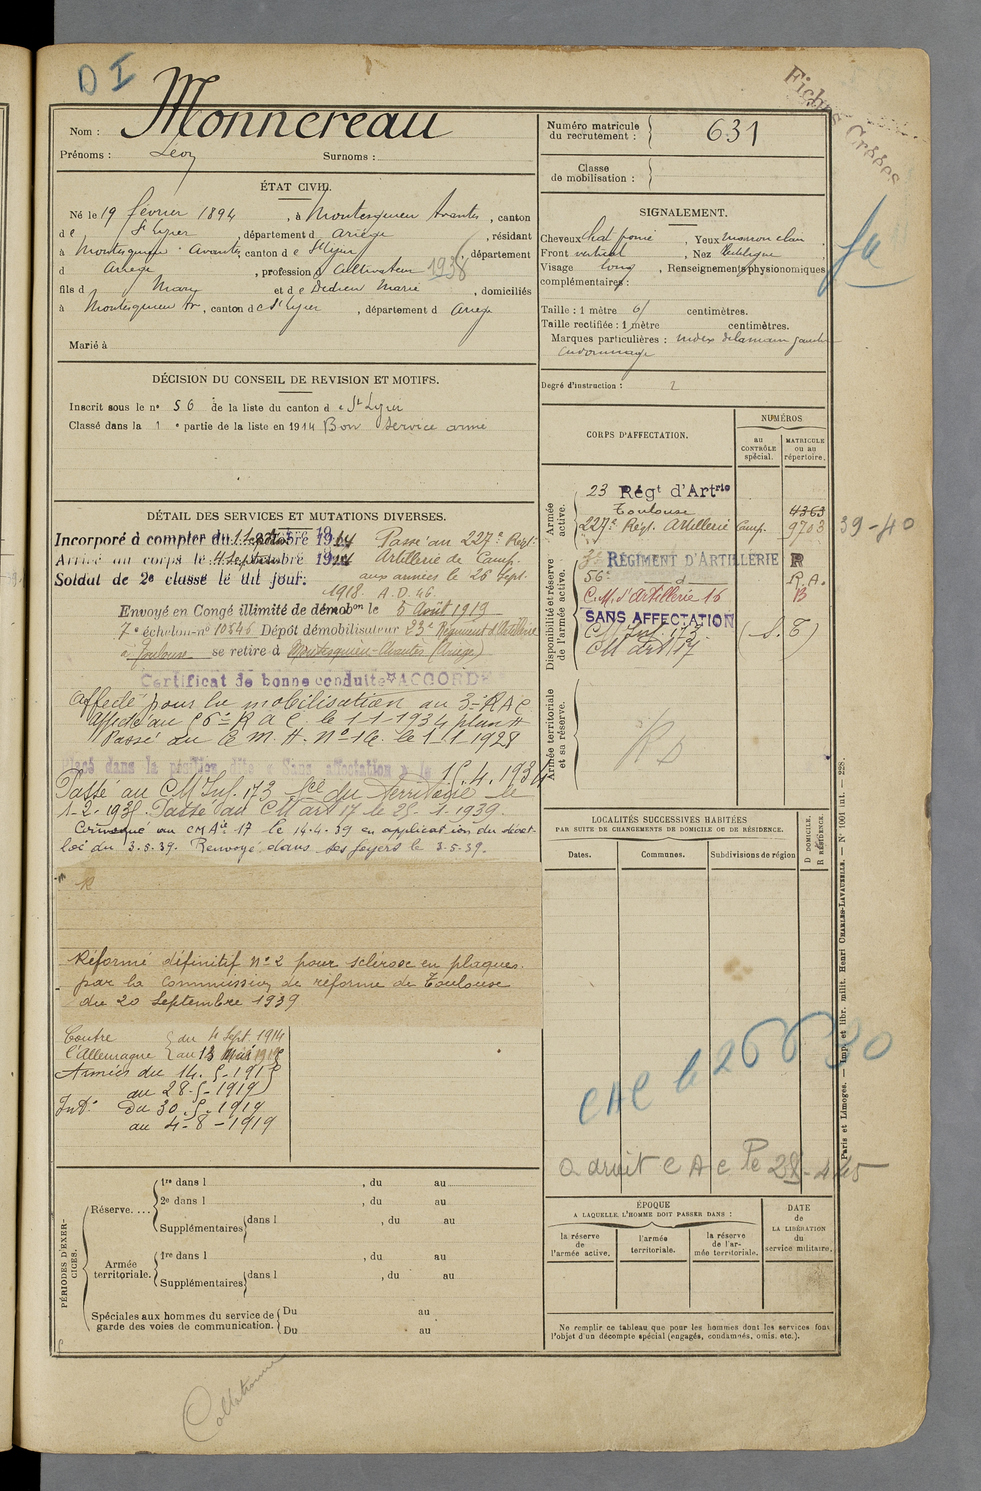 D I
Fiches Créées
Nom : Monnereau
Prénoms : Léon Surnoms :
Numéro matricule du recrutement : 631
Classe de mobilisation :
ÉTAT CIVIL.
Né le 19 février 1894, à Montesquieu Avantès, canton
de St Lizier, département d Ariège, résidant
à Montesquieu-Avantès, canton de St Lizier, département
d Ariège, profession d Cultivateur 1938
fils d Mary et de Dedieu Marie, domiciliés
à Montesquieu Av, canton de St Lizier, département d Ariège
Marié à
SIGNALEMENT.
Cheveux chat foncé, Yeux marron clair,
Front vertical, Nez rectiligne,
Visage long, Renseignements physionomiques
complémentaires :
Taille : 1 mètre 61 centimètres.
Taille rectifiée : 1 mètre centimètres.
Marques particulières : index de la main gauche
Degré d'instruction : 2
DÉCISION DU CONSEIL DE REVISION ET MOTIFS.
Inscrit sous le n° 56 de la liste du canton de St Lizier
Classé dans la 1e partie de la liste en 1914 Bon service armé
DÉTAIL DES SERVICES ET MUTATIONS DIVERSES.
Incorporé à compter du 1914 Passé au 227e Régt
Arrivé au corps le 4 septembre 1914 Artillerie de Camp.
Soldat de 2e classe le dit jour. aux armées le 26 sept.
1918. A.D. 46
Envoyé en Congé illimité de démobon le 5 Août 1919
7e échelon-n° 10546 Dépôt démobilisateur 23e Régiment d'Artillerie
à Toulouse se retire à Montesquieu-Avantès (Ariège)
Certificat de bonne conduite ACCORDÉ
Affecté pour la mobilisation au 3e RAC
Affecté au 56e RAC le 1-1-1934 plan
Passé au C.M.A. N° 16 le 1-1-1928
Placé dans la position dite « Sans affectation » le 15.4.1934
Passé au CM Inf. 173 du Territoire le
1-2-193 . Passé au CM art 17 le 25-1-1939.
Convoqué au CMAie 17 le 14-4-39 en application du décret-
loi du 3.5.39. Renvoyé dans ses foyers le 3-5-39.
R
Réformé définitif n° 2 pour sclérose en plaques.
par la Commission de réforme de Toulouse
du 20 Septembre 1939
Contre l'Allemagne } du 4 Sept. 1914
au 13 Mai 1918
Armées du 14.5-1918
au 28-5-1919
Int. Du 30.5.1919
au 4-8-1919
CORPS D'AFFECTATION.
NUMÉROS
AU CONTRÔLE spécial.
MATRICULE ou au répertoire.
Armée active.
23 Régt d'Artrie
Toulouse 4363
227e Régt. Artillerie Camp. 9703 39-40
Disponibilité et réserve de l'armée active.
3e RÉGIMENT D'ARTILLERIE R
56e d R.A.
C.M. d'Artillerie 16 B
SANS AFFECTATION
CM Inf. 173. (S.T)
CM art 17
Armée territoriale et sa réserve.
LOCALITÉS SUCCESSIVES HABITÉES
PAR SUITE DE CHANGEMENTS DE DOMICILE OU DE RÉSIDENCE.
Dates. Communes. Subdivisions de région
D DOMICILE. R RÉSIDENCE.
CAC le 26 6 30
a droit CAC le 28-4-45
PÉRIODES D'EXERCICES.
Réserve....
1re dans l , du au
2e dans l , du au
Supplémentaires dans l , du au
Armée territoriale.
1re dans l , du au
Supplémentaires dans l , du au
Spéciales aux hommes du service de garde des voies de communication.
Du au
Du au
ÉPOQUE
A LAQUELLE L'HOMME DOIT PASSER DANS :
la réserve de l'armée active.
l'armée territoriale.
la réserve de l'armée territoriale.
DATE de LA LIBÉRATION du service militaire.
Ne remplir ce tableau que pour les hommes dont les services font
l'objet d'un décompte spécial (engagés, condamnés, omis, etc.).
Paris et Limoges. — Imp. et libr. milit. Henri CHARLES-LAVAUZELLE. — N° 1001 int. — 228.
Collationné